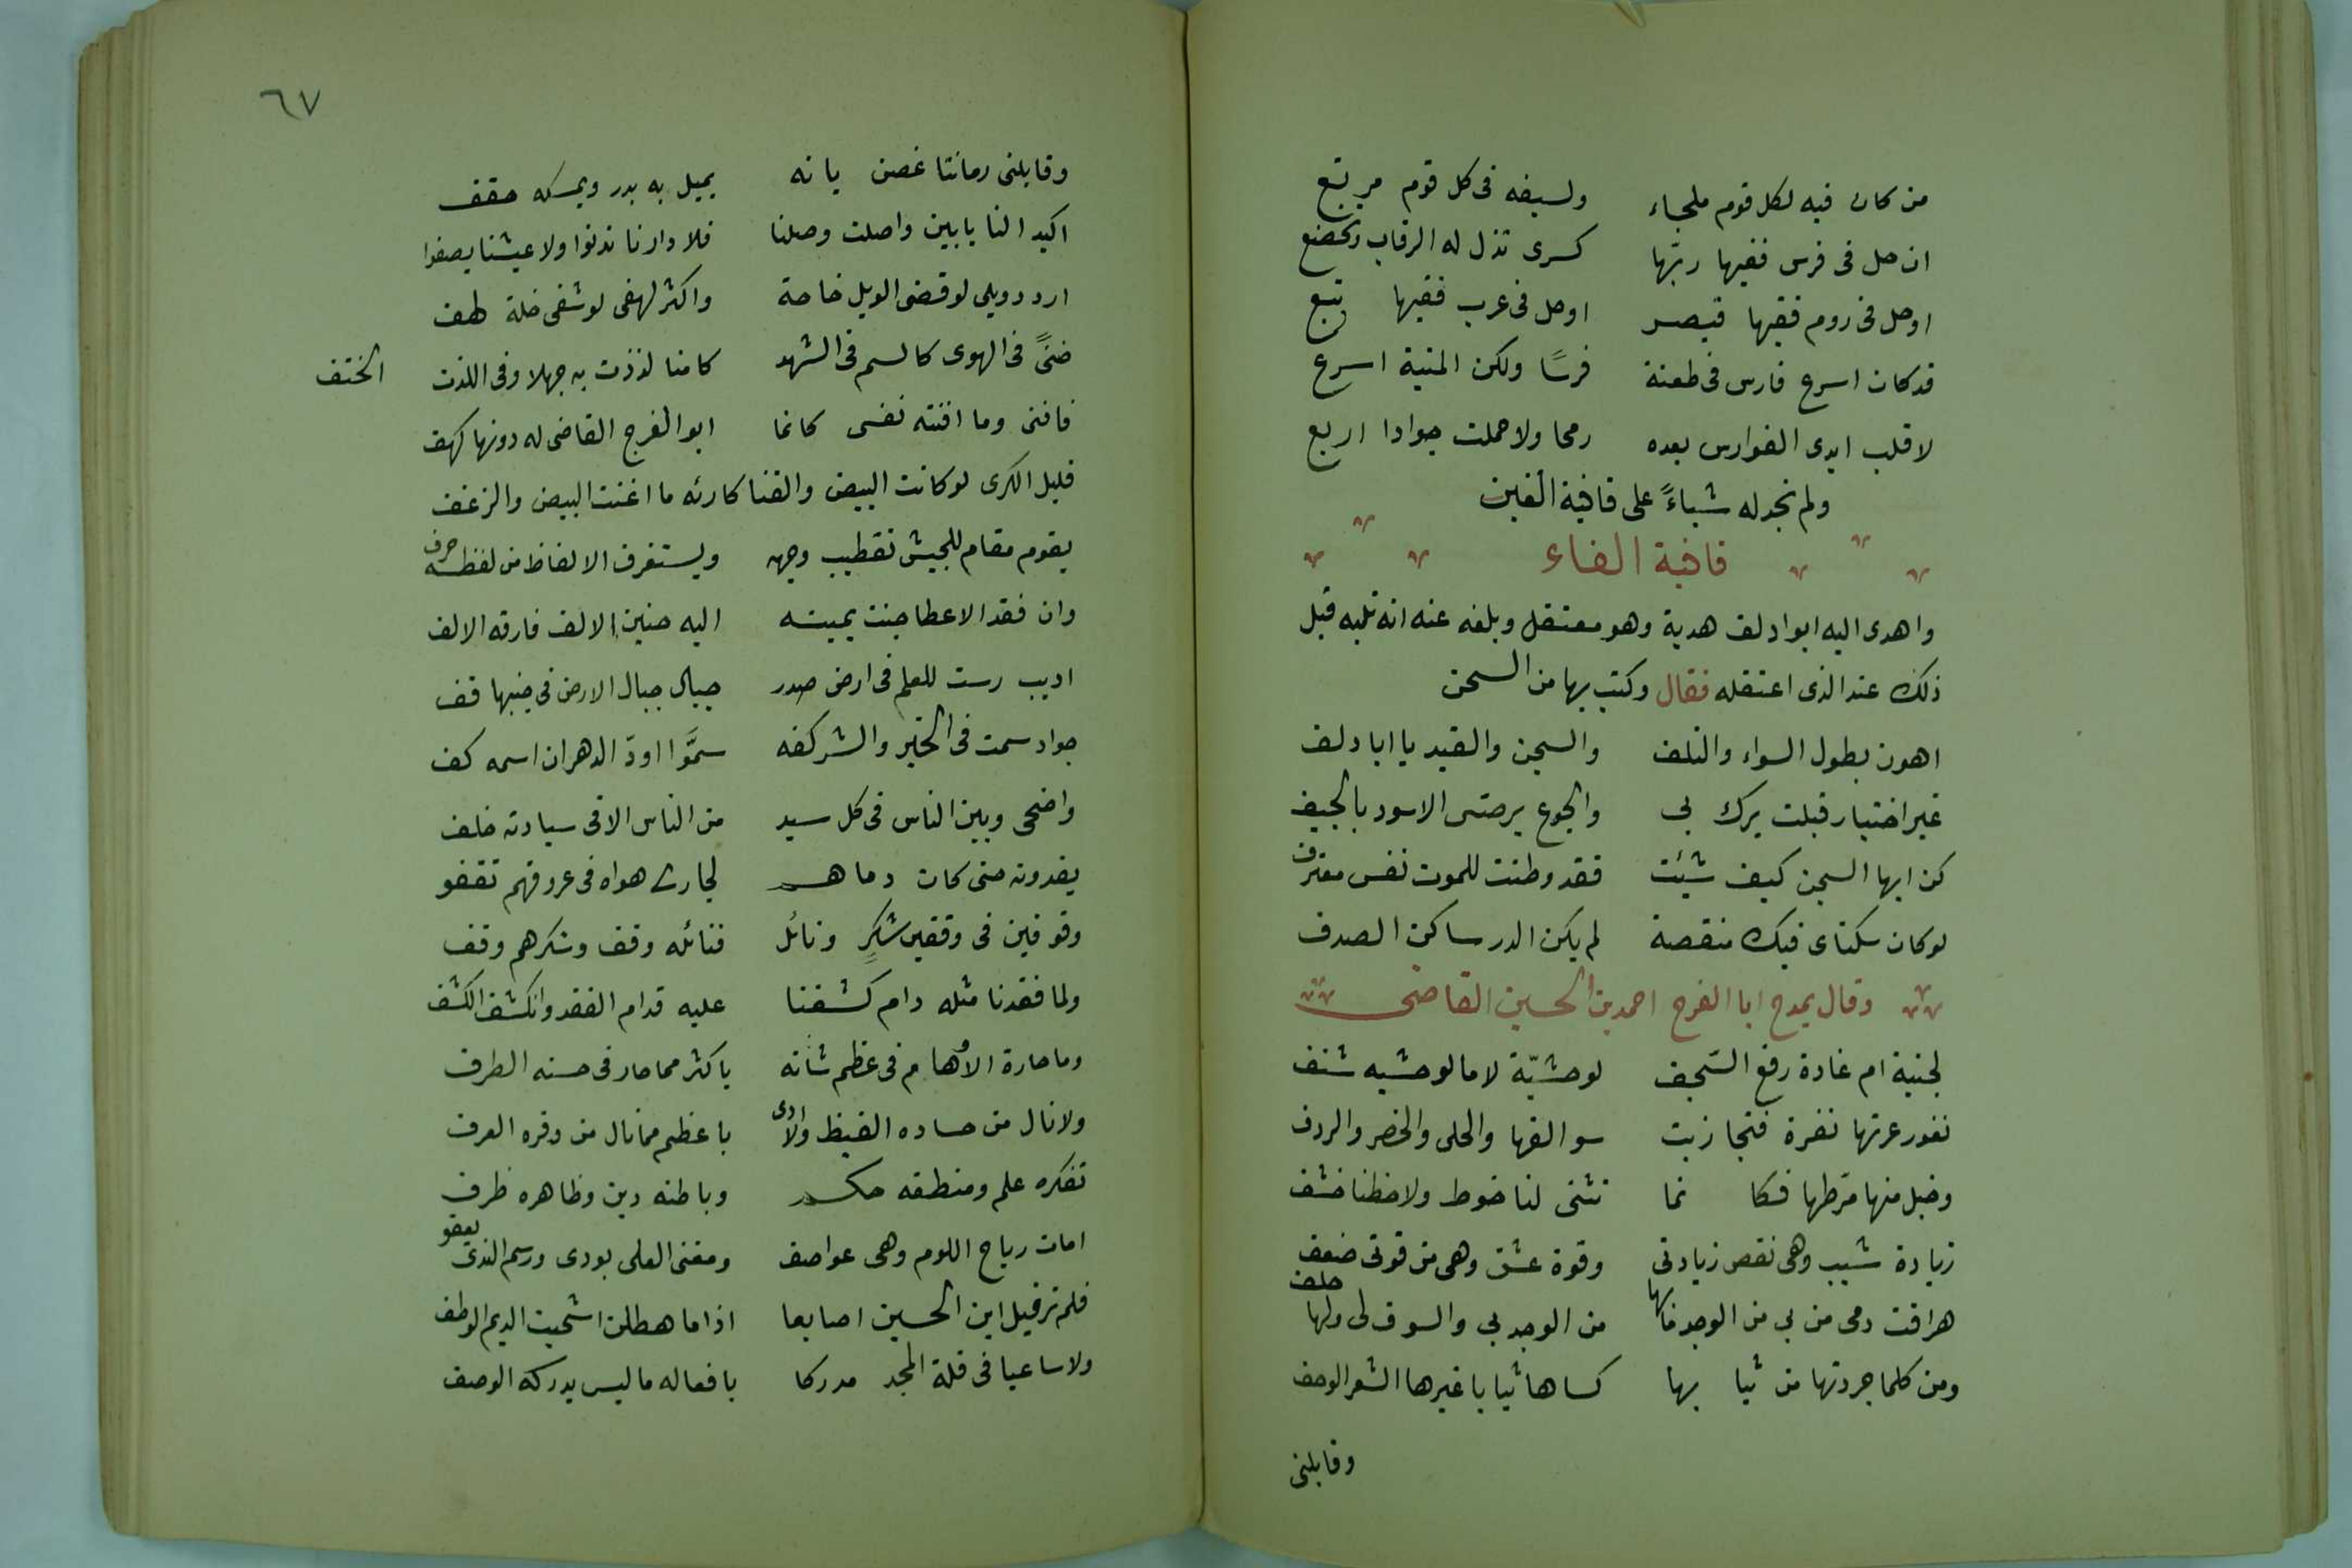 من كان فيه لكل قوم ملجاء ولسيفه فى كل قوم مرتع
ان حل فى فرس ففيها ربّها كسرى تذل له الرقاب وتخضع
اوحل فى روم ففيها قيصر اوحل فى عرب ففيها تبع
قد كان اسرع فارس فى طعنة فرسًا ولكن المنية اسرع
لا قلب ايدى الفوارس بعده رمحا ولا حملت جوادا اربع
ولم نجد له شياءً على قافية الغين
قافية الفاء
واهدى اليه ابواد لف هدية وهو معتقل وبلغه عنه انه ثلبه قبل
ذلك عند الذى اعتقله فقال وكتب بها من السجن
اهون بطول السواء والتلف والسجن والقيد يا ابا دلف
غير اختيار قبلت برك بى والجوع يرضى الاسود بالجيف
كن ايها السجن كيف شيئت فقد وطنت للموت نفس معترف
لوكان سكناى فيك منقصة لم يكن الدر ساكن الصدف
وقال يمدح ابا الفرج احمد بن الحسين القاضى
لجنية ام غادة رفع السّجف لوحشيّة لا مالوحشيه شنف
نفور عرتها نفرة فتجاذبت سوالفها والحلى والخصر والردف
وخبل منها مرّطها فكا نما تثنى لنا خوط ولاحظنا خشف
زيادة شيب وهى نقص زيادتى وقوة عشق وهى من قوتى ضعف
هراقت دمى من بى من الوجد مابها من الوجد بى والسوق لى ولها حلف
ومن كلما جردتها من ثيا بها كساها ثيابا غيرها الشعر الوحف
وقابلنى
٦٧
وقابلنى رمانتا غصن يانه يميل به بدر ويمسكه حقف
اكيد النا يابين واصلت وصلنا فلا دارنا تدنوا ولا عيشنا يصفوا
اردد ويلى لو قضى الويل حاجة واكثر لهفى لو شفى غلة لهف
ضنًى فى الهوى كالسم فى الشهد كامنا لذذت به جهلا وفى اللذت الحتف
فافنى وما افنته نفسى كانما ابوالفرج القاضى له دونها كهف
قليل الكرى لوكانت البيض والقنا كارئه ما اغنت البيض والزغف
يقوم مقام للجيش تقطيب وجهه ويستغرف الالفاظ من لفظه حرف
وان فقد الاعطا حنت يمينه اليه حنين الالف فارقه الالف
اديب رست للعلم فى ارض صدر جبال جبال الارض فى جنبها قف
جواد سمت فى الخير والشر كفه سموًّا اودّ الدهر ان اسمه كف
واضحى وبين الناس فى كل سيد من الناس الا فى سيادته خلف
يفدونه حتى كان دماهم لجارى هواه فى عروقهم تقفو
وقوفين فى وقفين شكرٍ ونائل فنائله وقف وشكرهم وقف
ولما فقدنا مثله دام كشفنا عليه قدام الفقد وانكشف الكشف
وماحارة الأوهام فى عظم شأنه باكثر مما حار فى حسنه الطرف
ولا نال من حساده الغيظ والاذى باعظم مما نال من وفره العرف
تفكره علم ومنطقه حكم وباطنه دين وظاهره ظرف
امات رياح اللوم وهى عواصف ومغنى العلى يودى ورسم الندى يعفو
فلم نر قبل ابن الحسين اصابعا اذا ما هطلن استحيت الديم الوطف
ولا ساعيا فى قلة المجد مدركا بافعاله ما ليس يدركه الوصف